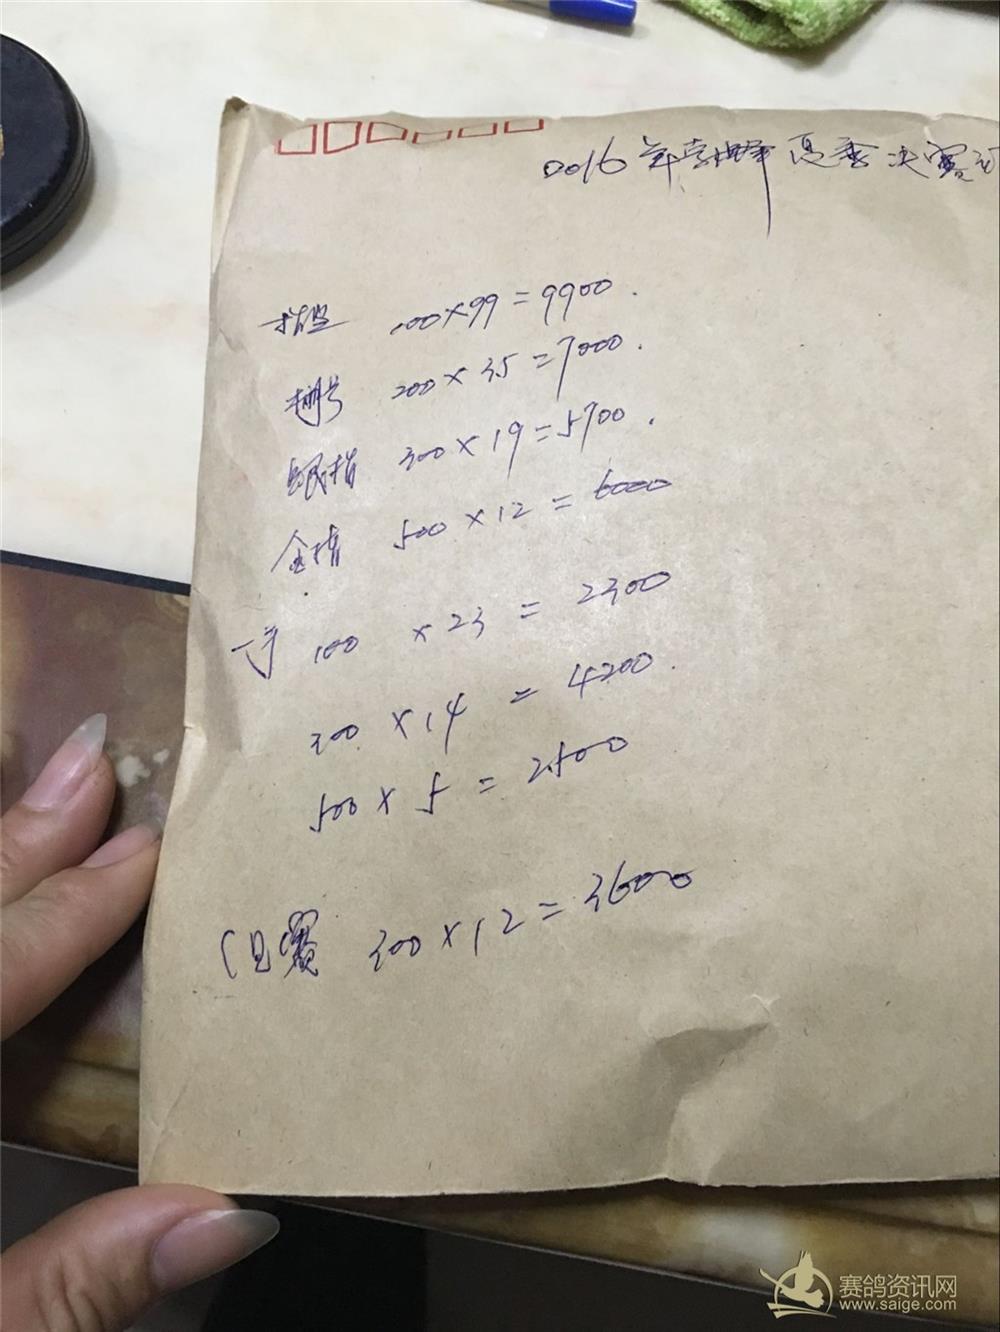 2016年 夏季决赛
100×99=9900.
棚号 200×35=7000.
银指 300×19=5700.
金指 500×12=6000
100 ×23 = 2300
300 ×14 = 4200.
500 × 5 = 2500
赛 300×12=3600
赛鸽资讯网
www.saige.com